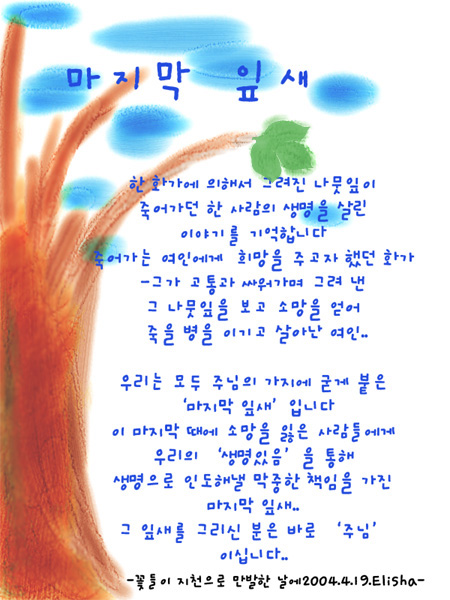 마지막 잎새
한 화가에 의해서 그려진 나뭇잎이
죽어가던 한 사람의 생명을 살린
이야기를 기억합니다
죽어가는 여인에게 희망을 주고자 했던 화가
-그가 고통과 싸워가며 그려 낸
그 나뭇잎을 보고 소망을 얻어
죽을 병을 이기고 살아난 여인..
우리는 모두 주님의 가지에 굳게 붙은
'마지막 잎새' 입니다
이 마지막 때에 소망을 잃은 사람들에게
우리의 '생명있음' 을 통해
생명으로 인도해낼 막중한 책임을 가진
마지막 잎새..
그 잎새를 그리신 분은 바로 '주님'
이십니다..
-꽃들이 지천으로 만발한 날에2004.4.19.Elisha-